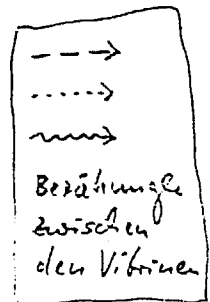 Beziehungen
zwischen
den Vitrinen